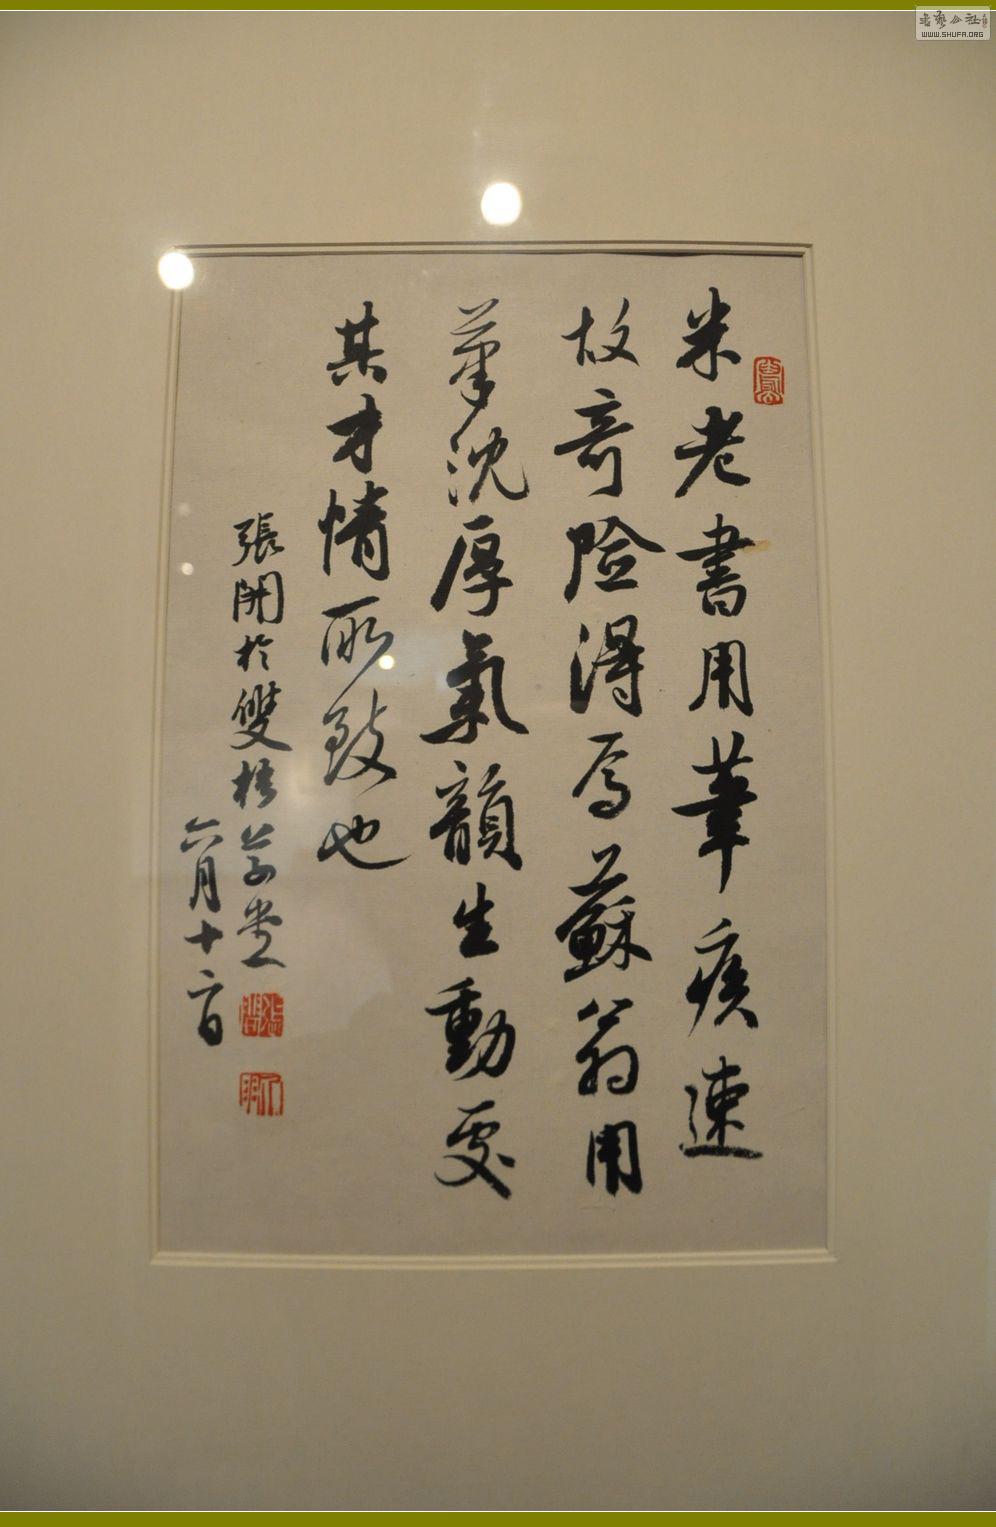 米老書用筆疾速
故奇险得焉蘇翁用
筆沈厚氣韻生動要
其才情所致也
張開於雙梧草堂
六月十六日
WWW.SHUFA.ORG